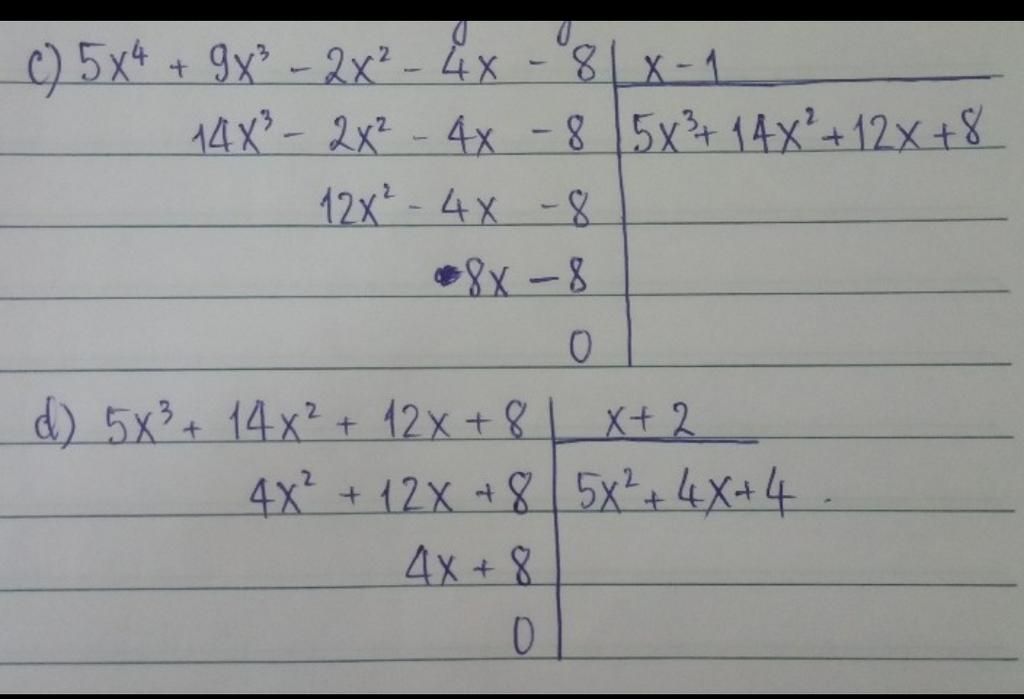 c) 5x⁴ + 9x³ - 2x² - 4x - 8 | x - 1
14x³ - 2x² - 4x - 8 | 5x³ + 14x² + 12x + 8
12x² - 4x - 8
8x - 8
0
d) 5x³ + 14x² + 12x + 8 | x + 2
4x² + 12x + 8 | 5x² + 4x + 4 .
4x + 8
0